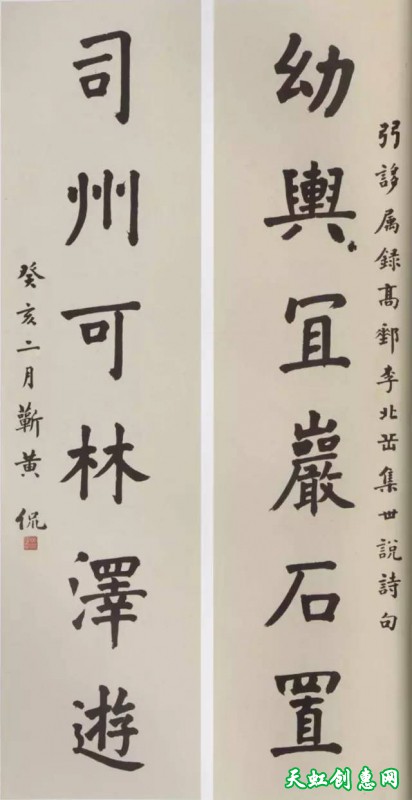 弜誃属録髙郵李北岳集世說詩句
幼輿冝巖石置
司州可林澤遊
癸亥二月蘄黄侃
天虹创惠网